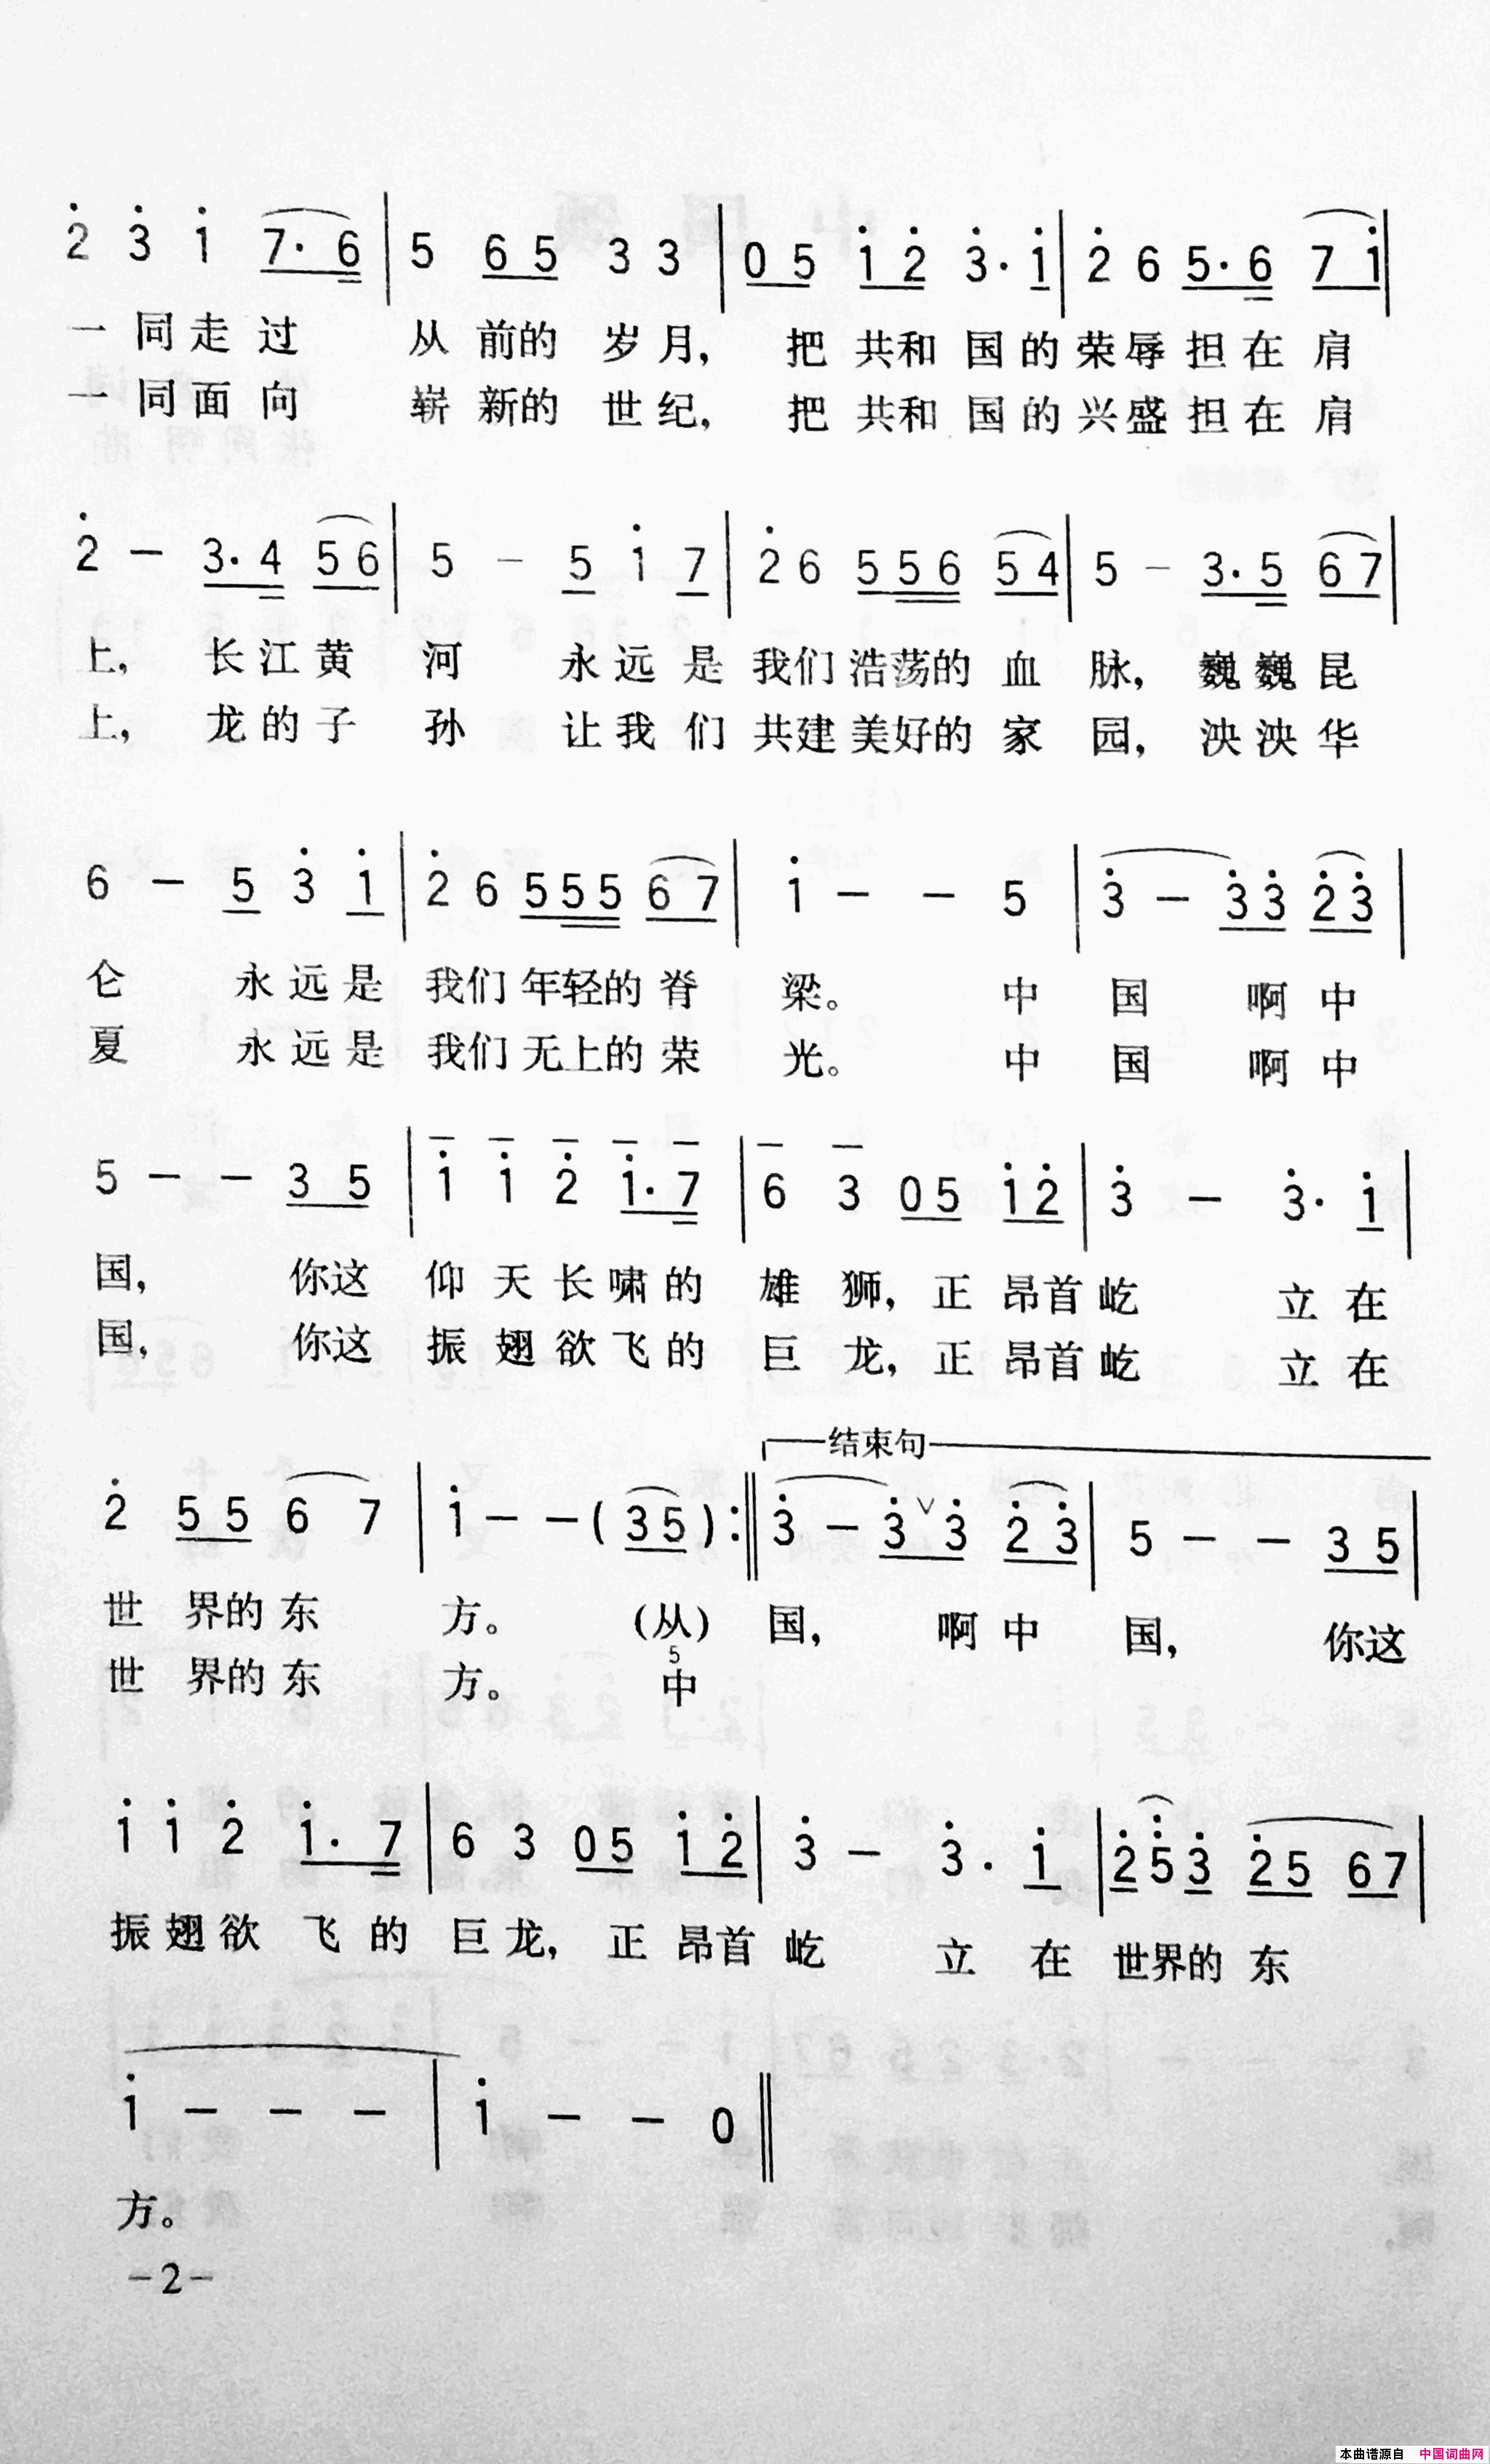 2̇ 3̇ 1̇ 7· 6 | 5 6 5 3 3 | 0 5 1̇ 2̇ 3̇· 1̇ | 2̇ 6 5· 6 7 1̇ |
一 同 走 过 从 前的 岁 月, 把 共和 国 的 荣 辱 担 在 肩
一 同 面 向 崭 新的 世 纪, 把 共和 国 的 兴 盛 担 在 肩
2̇ – 3· 4 5 6 | 5 – 5 1̇ 7 | 2̇ 6 5 5 6 5 4 | 5 – 3· 5 6 7 |
上, 长 江 黄 河 永 远 是 我们 浩荡的 血 脉, 巍 巍 昆
上, 龙 的 子 孙 让 我 们 共建 美好的 家 园, 泱 泱 华
6 – 5 3̇ 1̇ | 2̇ 6 5 5 5 6 7 | 1̇ – – 5 | 3̇ – 3̇ 3̇ 2̇ 3̇ |
仑 永 远 是 我们 年轻的 脊 梁。 中 国 啊 中
夏 永 远 是 我们 无上的 荣 光。 中 国 啊 中
5 – – 3 5 | 1̇ 1̇ 2̇ 1̇· 7 | 6 3 0 5 1̇ 2̇ | 3̇ – 3̇· 1̇ |
国, 你这 仰 天 长 啸 的 雄 狮, 正 昂首 屹 立 在
国, 你这 振 翅 欲 飞 的 巨 龙, 正 昂首 屹 立 在
结束句
2̇ 5 5 6 7 | 1̇ – – ( 3 5 ) :‖ 3̇ – 3̇ ∨ 3̇ 2̇ 3̇ | 5 – – 3 5 |
世 界的 东 方。 (从) 国, 啊 中 国, 你这
5
世 界的 东 方。 中
1̇ 1̇ 2̇ 1̇· 7 | 6 3 0 5 1̇ 2̇ | 3̇ – 3̇· 1̇ | 2̇ 5̇ 3̇ 2̇ 5 6 7 |
振 翅 欲 飞 的 巨 龙, 正 昂首 屹 立 在 世界的 东
1̇ – – – | 1̇ – – 0 ‖
方。
–2–
本曲谱源自 中国词曲网